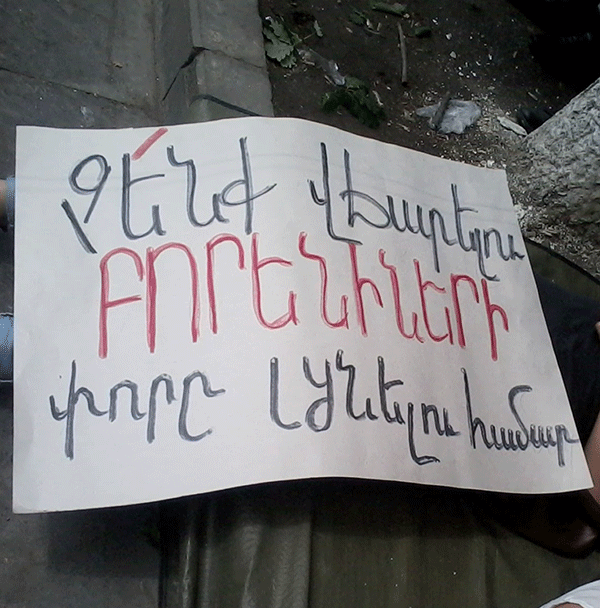 Չե՛նք վճարելու
ԲՈՐԵՆԻՆԵՐԻ
փորը լցնելու համար